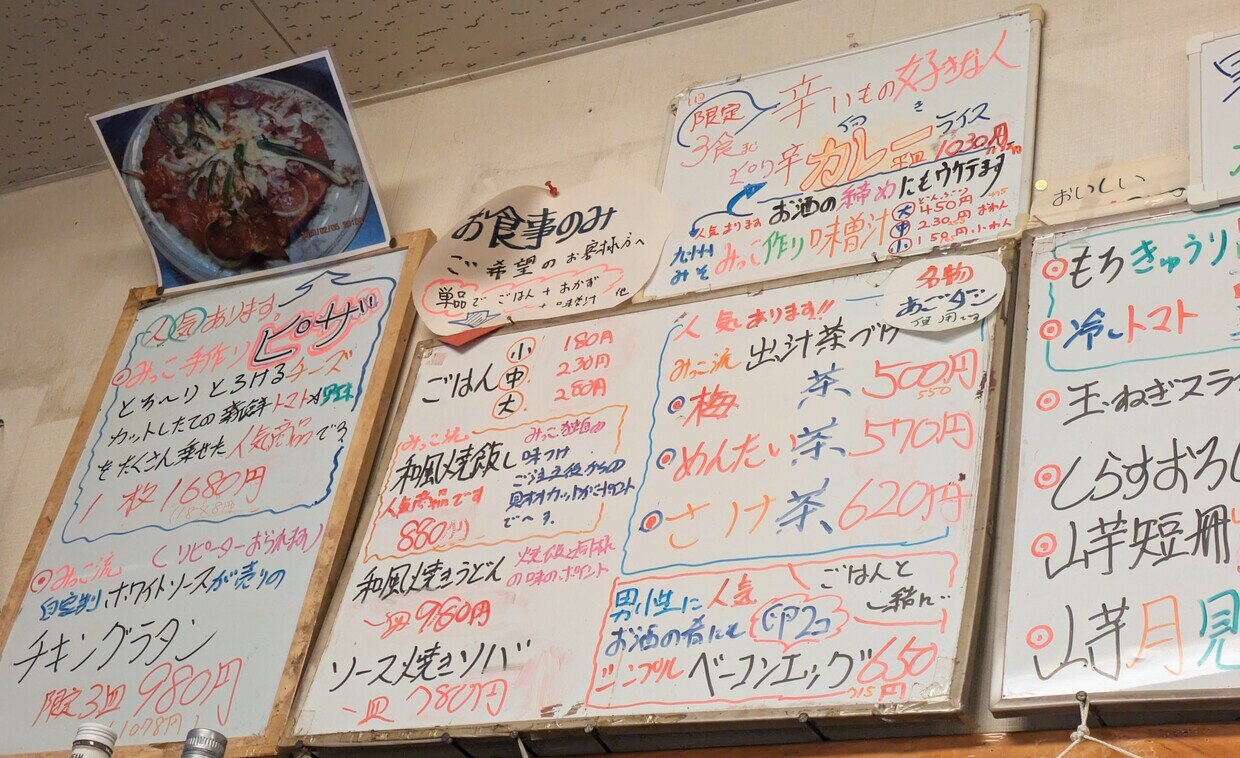 人気あります。
みっこ手作り ピザ
とろ〜りとろけるチーズ
カットしたての トマト
をたくさん乗せた人気商品です
1枚 1680円
みっこ流 (リピーターおられます)
自家製ホワイトソースが売りの
チキングラタン
限定3皿 980円
1078円
お食事のみ
ご希望のお客様方へ
単品で ごはん + おかず
+ 味噌汁 他
ごはん
小 180円
中 230円
大 280円
みっこ流
和風焼飯
人気商品です
880円
みっこ独自の
味つけ
ご注文後からの
和風焼きうどん
一皿 980円
焼飯と同様
の味のポイント
ソース焼きソバ
一皿 780円
限定
3食まで
辛いもの好きな人
向き
ピリ辛 カレーライス
平皿 1030円
お酒の締めにもウケてます
人気あります
九州
みそ
みっこ作り味噌汁
大 450円
中 230円 おわん
小 150円 小わん
名物
あごダシ
使用です
人気あります!!
みっこ流 出汁茶づけ
梅茶 500円
550
めんたい茶 570円
さけ茶 620円
男性に人気
ごはんと
一緒に…
お酒の肴にも
卵2コ
シンプル ベーコンエッグ 650円
715
おいしい
もろきゅうり
冷しトマト
玉ねぎスラ
しらすおろし
山芋短冊
山芋月見